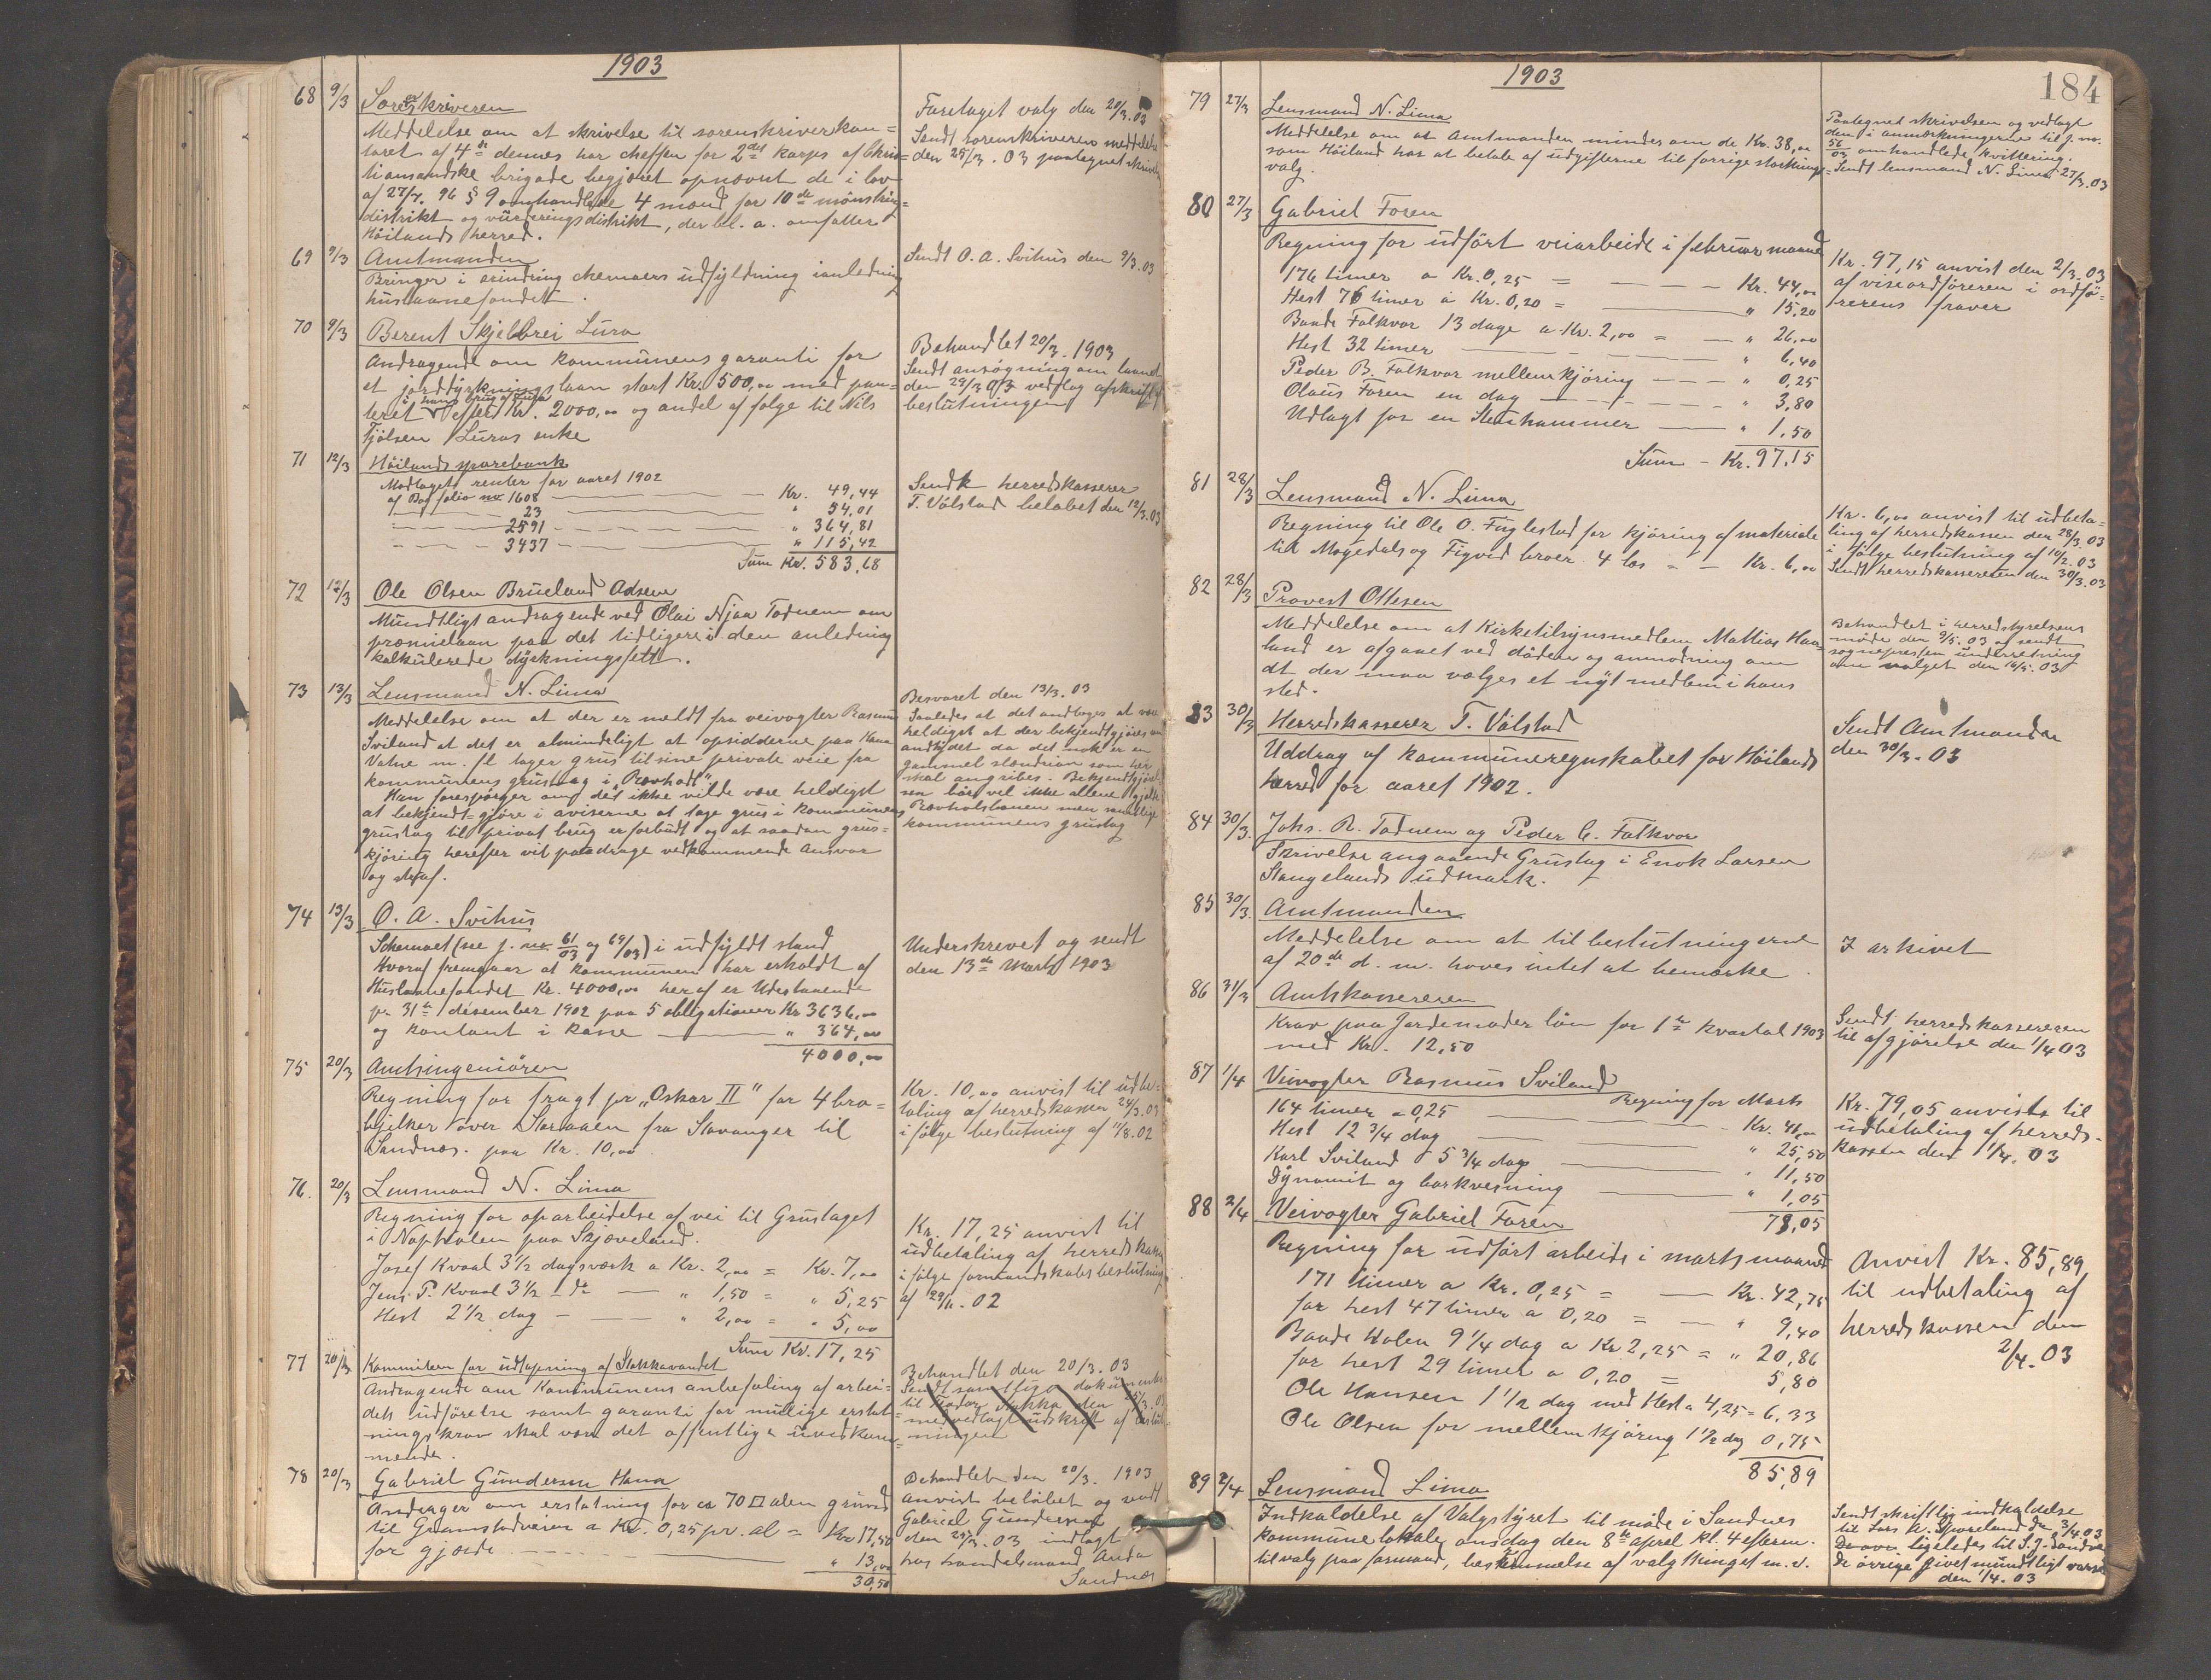 1903
68 9/3 Sorenskriveren
Meddelelse om at skrivelse til sorenskriverkon=
toret af 4de dennes har cheffen for 2det korps af Chris=
tiansandske brigade begjæret opnævnt de i lov
af 27/7. 96 § 9 omhandlede 4 mænd for 10de mønstrings=
distrikt og vurderingsdistrikt, der bl. a. omfatter
Höilands herred.
Foretaget valg den 20/3.03
Sendt sorenskriveren meddelelse
den 25/3. 03 paategnet skrivelsen
69 9/3 Amtmanden
Bringer i erindring skemaers udfyldning i anledning
huslaanefondet.
Sendt O. A. Svihus den 9/3.03
70 9/3 Berent Skjelbrei Lura
Andragende om kommunens garanti for
et jorddyrkningslaan stort Kr. 500,00 med pan=
i hans brug af Lura
teret efter Kr. 2000,00 og andel af følge til Nils
Tjölsen Luras enke
Behandlet 20/3. 1903
Sendt ansøgning om laanet
den 29/3 03 vedlag afskrift af
beslutningen
71 12/3 Höilands sparebank
Modtaget renter for aaret 1902
af Bog folio no. 1608 — Kr. 49,44
— 23 — " 54,01
— 2591 — " 364,81
— 3437 — " 115,42
Sum Kr. 583,68
Sendt herredskasserer
T. Vålstad belöbet den 12/3.03
72 12/3 Ole Olsen Brueland Adsen
Mündtligt andragende ved Olai Njaa Todnem om
præmielaan paa det tidligere i den anledning
kalkulerede dyrkningsfelt.
73 13/3 Lensmand N. Lima
Meddelelse om at der er meldt fra veivogter Rasmus
Sviland at det er almindeligt at opsidderne paa Hana
Vatne m. fl. tager grus til sine private veie fra
kommunens grustag i "Rovholt"
Han forespörger om det ikke vilde være heldigst
at bekjendt=gjöre i aviserne at tage grus i kommunens
grustag til privat brug er forbudt og at saadan grus=
kjöring herefter vil paadrage vedkommende Ansvar
og straf.
Besvaret den 13/3. 03
Saaledes at det antages at være
heldigst at der bekjendtgjöres om
andet det da det nok er en
gammel slendrian som her
skal angribes. Bekjendtgjörel=
sen bör vel ikke allene gjælde
Rovholtbanen men samtlige
kommunens grustag
74 13/3 O. A. Svihus
Schemaet (see j. no. 61/03 og 69/03) i udfyldt stand
Hvoraf fremgaar at kommunen har erholdt af
Huslaanefondet Kr. 4000,00 heraf er Udestaaende
pr 31te desember 1902 paa 5 obligationer Kr 3636,00
og kontant i kasse — " 364,00
4000,00
Underskrevet og sendt
den 13de Marts 1903
75 20/3 Amtsingeniören
Regning for fragt pr „Oskar II" for 4 bro=
bjelker over Storaaen fra Stavanger til
Sandnes. paa Kr. 10,00
Kr. 10,00 anvist til udbe=
taling af herredskassen 24/3.03
i følge beslutning af 11/8.02
76. 20/3 Lensmand N. Lima
Regning for oparbeidelse af vei til Grustaget
i Nopholen paa Skjæveland.
Josef Kvaal 3 1/2 dagsværk a Kr. 2,00 = Kr. 7,00
Jens P. Kvaal 3 1/2 — do — " 1,50 = " 5,25
Hest 2 1/2 dag — — " 2,00 = " 5,00
Sum Kr. 17,25
Kr. 17,25 anvist til
udbetaling af herredskassen
i følge formandskabsbeslutning
af 29/11. 02
77 20/3 Kommiteen for udtapning af Stokkavandet
Andragende om Kommunens anbefaling af arbei=
dets udförelse samt garanti for mulige erstat=
ningskrav skal være det offentlige uvedkom=
mende.
Behandlet den 20/3. 03
Sendt samtlige dokumenter
til Stokka den 25/3.03
med vedlagt udskrift af beslut=
ningen
78 20/3 Gabriel Gundersen Hana
Andrager om erstatning for ca 70 □ alen grund
til Gramstadveien a Kr. 0,25 pr. al = Kr 17,50
for gjærde — " 13,00
30,50
Behandlet den 20/3. 1903
anvist belöbet og sendt
Gabriel Gundersen
den 24/3.03 indlagt
hos handelsmand Anda
Sandnes
1903
184
79 27/3 Lensmand N. Lima
Meddelelse om at Amtmanden mindes om de Kr. 38,00
som Höiland har at betale af udgifterne til forrige storthings=
valg.
Paategnet skrivelsen og vedlagt
den i anmærkningerne til j. no.
56/03 omhandlede kvittering.
Sendt lensmand N. Lima 27/3.03
80 27/3 Gabriel Foren
Regning for udfört veiarbeide i februar maaned
176 timer a Kr. 0,25 = — Kr. 44,00
Hest 76 timer a Kr. 0,20 = — " 15,20
Baarde Folkvor 13 dage a Kr. 2,00 = — " 26,00
Hest 32 timer — " 6,40
Peder B. Folkvor mellemkjöring — " 0,25
Olaus Foren en dag — " 3,80
Udlagt for en Stenhammer — " 1,50
Sum — Kr. 97,15
Kr. 97,15 anvist den 2/3.03
af viseordföreren i ordfö=
rerens fravær
81 28/3 Lensmand N. Lima
Regning til Ole O. Fuglestad for kjöring af materiale
til Mogedals og Figved broer. 4 læs = — Kr. 6,00
Kr. 6,00 anvist til udbeta=
ling af herredskassen den 28/3.03
i følge beslutning af 10/2.03
Sendt herredskassereren den 30/3.03
82 28/3 Provest Ottesen
Meddelelse om at Kirketilsynsmedlem Mattias Haa=
land er afgaaet ved döden og anmodning om
at der maa vælges et nyt medlem i hans
sted.
Behandlet i herredsstyrelsens
möde den 9/5. 03 og sendt
sognepresten underretning
om valget den 14/5. 03
83 30/3 Herredskasserer T. Vålstad
Uddrag af kommuneregnskabet for Höilands
herred for aaret 1902.
Sendt Amtmanden
den 30/3. 03
84 30/3. Johs. R. Todnem og Peder C. Folkvor
Skrivelse angaaende Grustag i Enok Larsen
Stangelands udmark.
85 30/3. Amtmanden
Meddelelse om at til beslutningerne
af 20de d. m. haves intet at bemærke.
I arkivet
86 31/3 Amtskassereren
Krav paa Jordemoder lön for 1ste kvartal 1903
med Kr. 12,50
Sendt herredskassereren
til afgjörelse den 1/4 03
87 1/4 Veivogter Rasmus Sviland
Regning for Marts
164 timer a 0,25 — Kr. 41,00
Hest 12 3/4 dag — " 25,50
Karl Sviland 5 3/4 dag — " 11,50
Dynamit og borkvesning — " 1,05
79,05
Kr. 79,05 anvistes til
udbetaling af herreds-
kassen den 1/4. 03
88 2/4 Veivogter Gabriel Foren
Regning for udfört arbeide i marts maaned
171 timer a Kr. 0,25 = — Kr. 42,75
for hest 47 timer a 0,20 = — " 9,40
Baade Holen 9 1/4 dag a Kr 2,25 = " 20,86
for hest 29 timer a 0,20 = 5,80
Ole Hansen 1 1/2 dag med Hest a 4,25 = 6,33
Ole Olsen for mellemkjöring 1 1/2 dag 0,75
85,89
Anvist Kr. 85,89
til udbetaling af
herredskassen den
2/4.03
89 2/4 Lensmand Lima
Indkaldelse af Valgstyret til möde i Sandnes
kommunelokale onsdag den 8de april kl. 4 efterm.
til valg paa formand, bestemmelse af valgthinget m. v.
Sendt skriftlig indkaldelse
til Lars A. Sporeland den 3/4.03
De øvr. ligeledes til S. J. Sandve
De övrige givet mündtligt varsel
den 4/4. 03